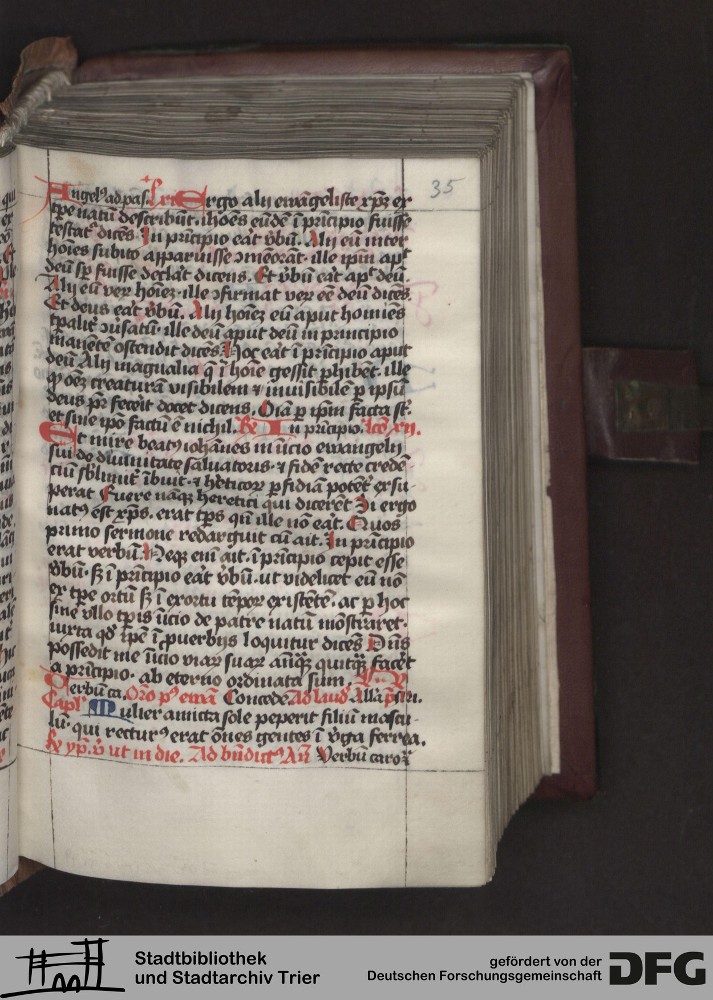 35
Angelꝰ ad pas. Lxi Ergo alij ewāgeliste xp̄m ex
tp̄e natū describūt ihōes eūdē ī pncipio fuisse
testatᷣ dicēs In pncipio eāt v̄bū. Alij eū inter
hoīes subito apparuisse ɔmēorāt. ille ip̄m apᷤ
deū sꝑ fuisse declāt dicens. Et v̄bū eāt apᷤ deū.
Alij eū veꝝ hoīez. ille ɔfirmat veꝝ eē deū dicēs.
Et deus eāt v̄bū. Alij hoīez eū aput homines
tꝑalitᷣ ɔv̄satū. ille deū aput deū in principio
manētē ostendit dicēs Hoc eāt ī pncipio aput
deū Alij magnalia q̄ ī hoīe gessit ꝑhibēt. ille
ꝙ oēz creaturā visibilem ⁊ īuisibilē ꝑ ipsū
deus pr̄ fecerit docet dicens. Oīa ꝑ ip̄m facta sᷤ.
et sine ip̄o factū ē nichil. Rx In pncipio. Lcō xij.
Et mire beatꝰ iohānes in īicio ewangelij
sui de diuinitate saluatoris. ⁊ fidē recte credē-
ciū sblimitᷣ ībuit. ⁊ h̄eticoꝝ ꝑfidiā potētᷣ exsu-
perat Fuere nāqꝫ heretici qui dicerēt Si ergo
natꝰ est xp̄s. erat tp̄s qn̄ ille nō eāt. Quos
primo sermone redarguit cū ait. In pncipio
erat verbū. Neqꝫ eni ait. ī pncipio cepit esse
v̄bū. sꝫ ī pncipio eāt v̄bū. ut videlicet eū nō
ex tp̄e ortū sꝫ ī exortu tēpoꝝ existētē. ac ꝑ hoc
sine vllo tꝑis īicio de patre natū mōstraret.
iuxta qd̓ ip̄e ī ꝓuerbijs loquitur dicēs Dn̄s
possedit me īicio viaꝝ suaꝝ anq̄ꝫ quitq̄ꝫ facēt
a pncipio. ab eterno ordinata sum. Rx V
Verbū ca. Orō pᷤ ewā Concede. Ad laudᷤ Alla pᷤtri.
Caplᷤ Mulier amicta sole peperit filiū mascu-
lū. qui recturꝰ erat ōnes gentes ī v̄ga ferrea.
Rx yp̄. v̄ ut in die. Ad bn̄dictꝰ An̄ Verbū caro
Stadtbibliothek
und Stadtarchiv Trier
gefördert von der
Deutschen Forschungsgemeinschaft
DFG